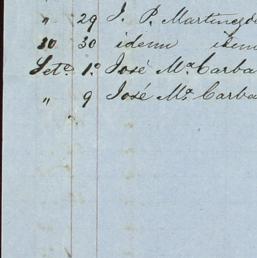 " 29 J. P. Martinez de
30 30 idem idem
Set.e 1.o José M.a Carba
" 9 José M.a Carba